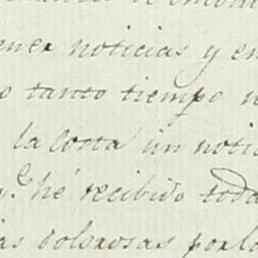 ener noticias y en
o tanto tiempo
la costa un noti
y.e hé recibido toda
as dolorosas por lo